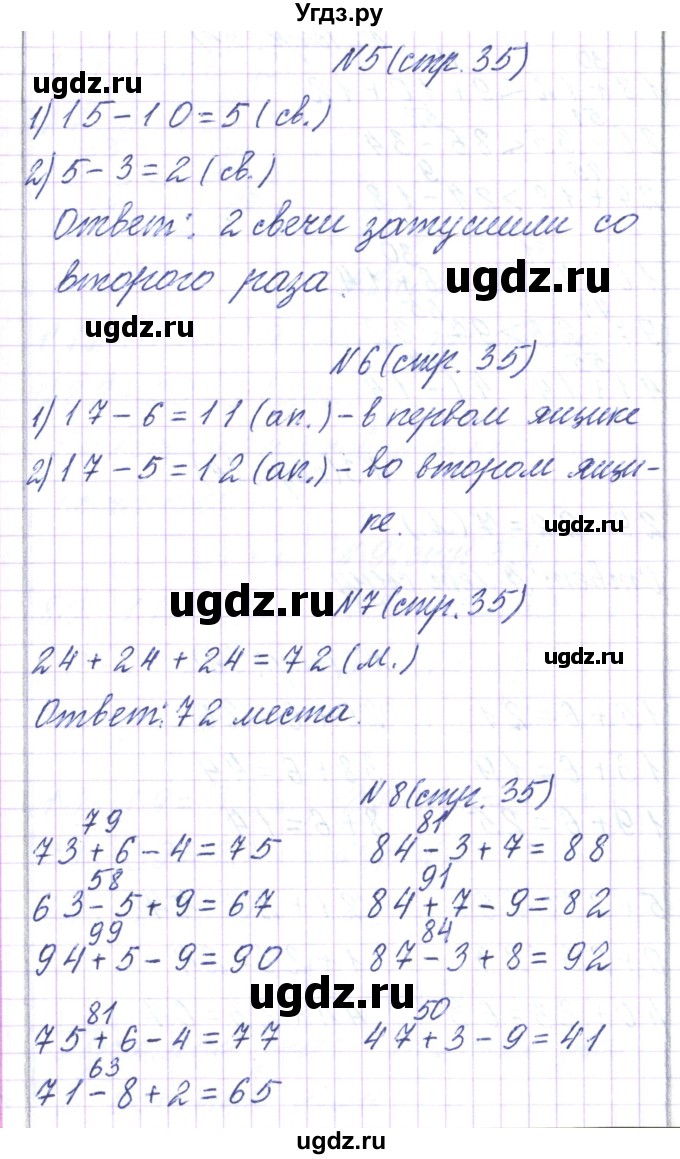 Угдз.ру
№5 (стр. 35)
ugdz.ru
1) 15 – 10 = 5 (св.)
2) 5 – 3 = 2 (св.)
Ответ: 2 свечи затушили со
второго раза.
ugdz.ru
ugdz.ru
№6 (стр. 35)
1) 17 – 6 = 11 (ап.) – в первом ящике
2) 17 – 5 = 12 (ап.) – во втором ящи-
ке.
ugdz.ru
ugdz.ru
№7 (стр. 35)
24 + 24 + 24 = 72 (м.)
ugdz.ru
Ответ: 72 места.
№8 (стр. 35)
79 81
73 + 6 – 4 = 75 84 – 3 + 7 = 88
58 91
63 – 5 + 9 = 67 84 + 7 – 9 = 82
99 84
94 + 5 – 9 = 90 87 – 3 + 8 = 92
ugdz.ru
81 50
75 + 6 – 4 = 77 47 + 3 – 9 = 41
63
71 – 8 + 2 = 65
ugdz.ru